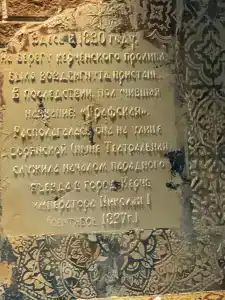 Здесь в 1830 году
на берегу Керченского пролива
была воздвигнута пристань.
В последствии, получившая
название: "Графская".
Располагалась она на улице
Дворянской (ныне Театральная)
служила началом парадного
въезда в город Керчь
императора Николая I
1837г.)